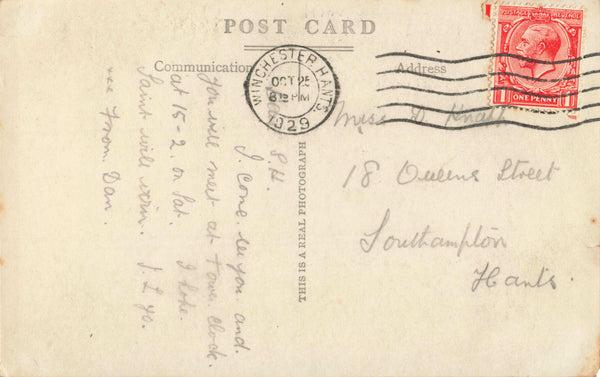 POST CARD
Communication
Address
WINCHESTER. HANTS.
OCT 25
8 15 PM
1929
POSTAGE REVENUE
1 ONE PENNY 1
THIS IS A REAL PHOTOGRAPH
S.H.
I come see you and
you will meet at town clock.
at 15-2. on Sat. I hope
Saint will win. I. L. yo.
xx From Dan.
Miss D Knapp
18 Queens Street
Southampton
Hants.